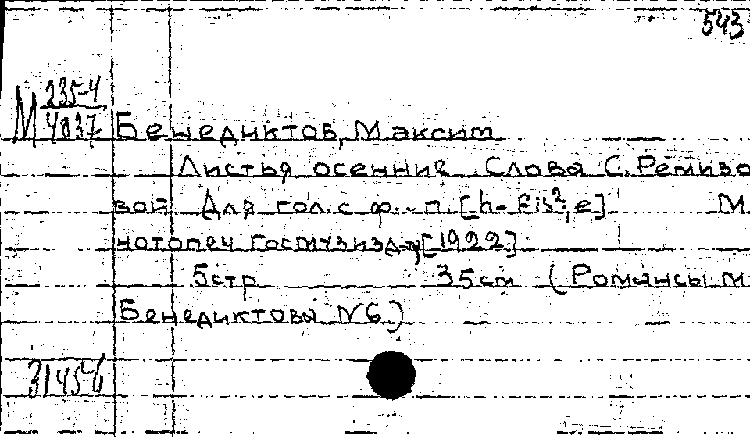 543
М 235-4
4037
Бенедиктов, Максим
Листья осенние. Слова С. Ремизо
вой Для гол. с ф.-п. [h-fis²; e] М.
нотопеч Госмузизд-ва [1922]
5 стр 35 см (Романсы М
Бенедиктова № 6)
31456